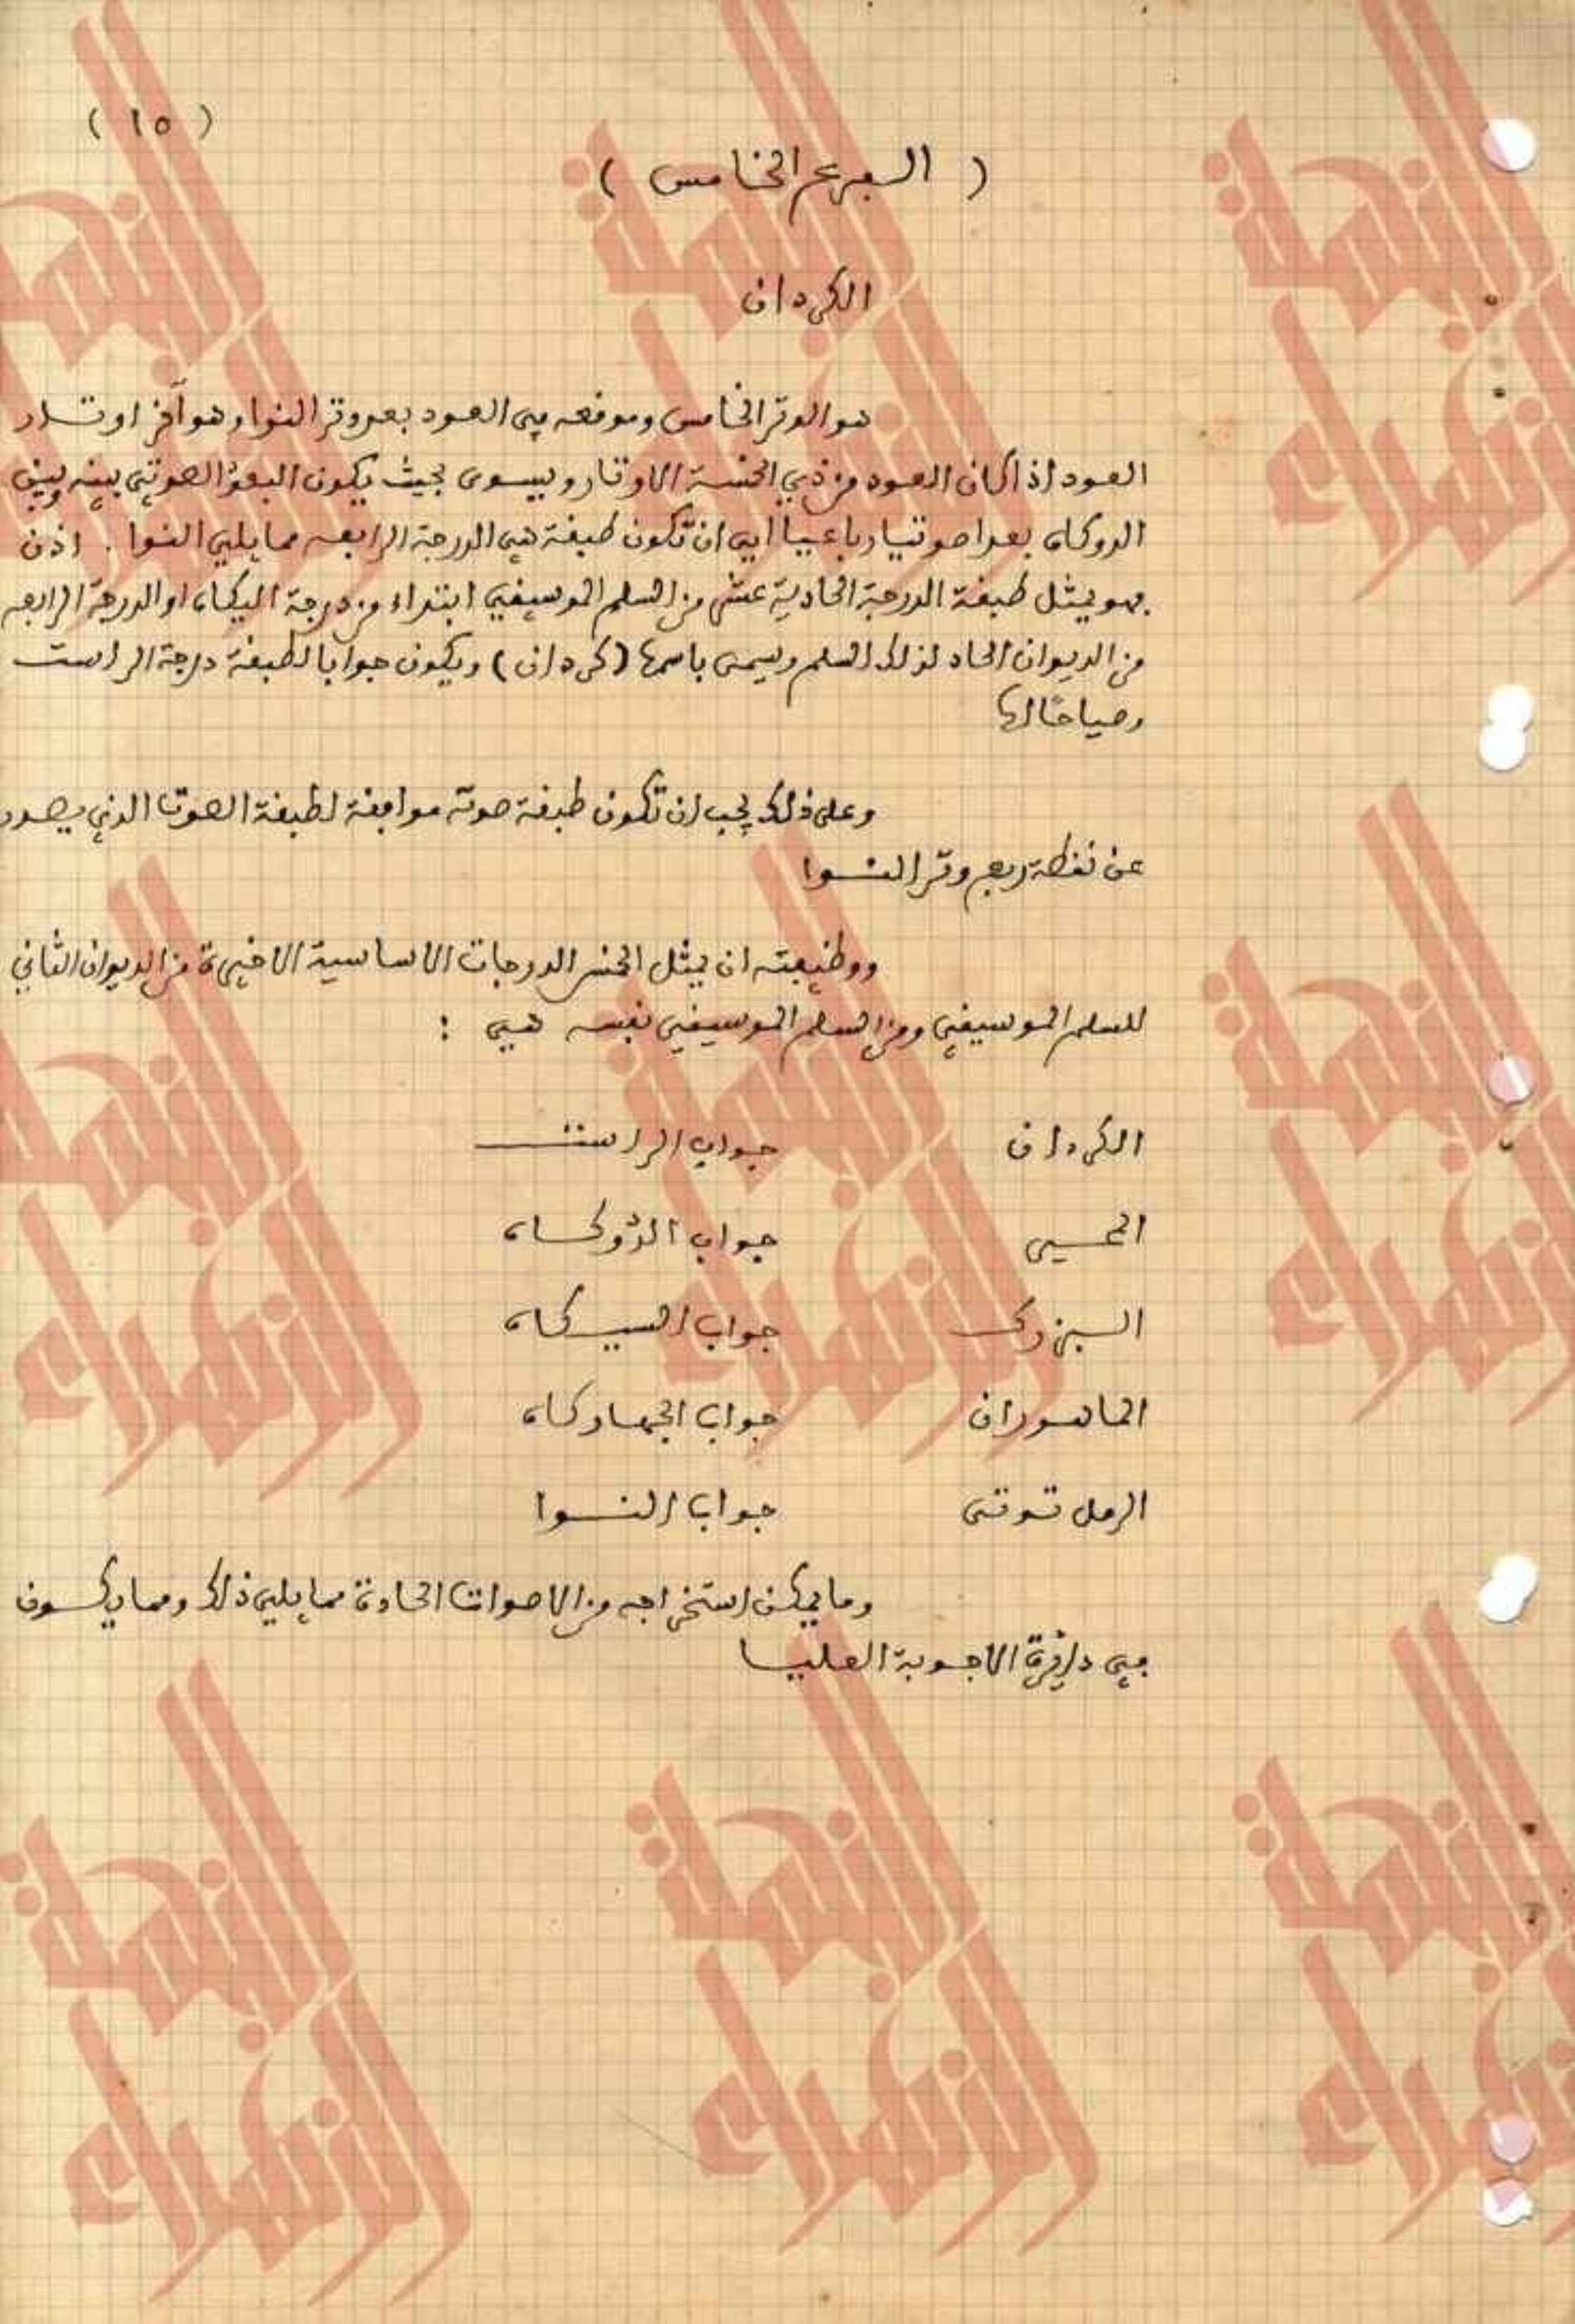 ( ١٥ )
( الفرع الخامس )
الكردان
هو الوتر الخامس وموقعه في العود بعد وتر النوا وهو آخر اوتار
العود اذا كان العود من ذي الخمسة الاوتار ويسوى بحيث يكون البعد الصوتي بينه وبين
الدوكاه بعدا صوتيا رباعيا اي ان تكون طبقة هي الدرجة الرابعه مما يلي النوا . اذن
فهو يمثل طبقة الدرجة الحادية عشر من السلم الموسيقي ابتداء من درجة اليكاه او الدرجة الرابعه
من الديوان الحاد لذلك السلم ويسمى باسمها (كردان) ويكون جوابا لطبقة درجة الراست
وصياحًا لها
وعلى ذلك يجب ان تكون طبقة صوته موافقة لطبقة الصوت الذي يصدر
عن نقطة ربع وتر النوا
ووظيفته ان يمثل الخمس الدرجات الاساسية الاخيرة من الديوان الثاني
للسلم الموسيقي ومن السلم الموسيقي نفسه هي :
الكردان جواب الراست
المحير جواب الدّوكاه
البزرك جواب السيكاه
الماهوران جواب الجهاركاه
الرمل توتي جواب النوا
وما يمكن استخراجه من الاصوات الحادة مما يلي ذلك ومما يكون
في دائرة الاجوبة العليا
النهضة
الزهراء